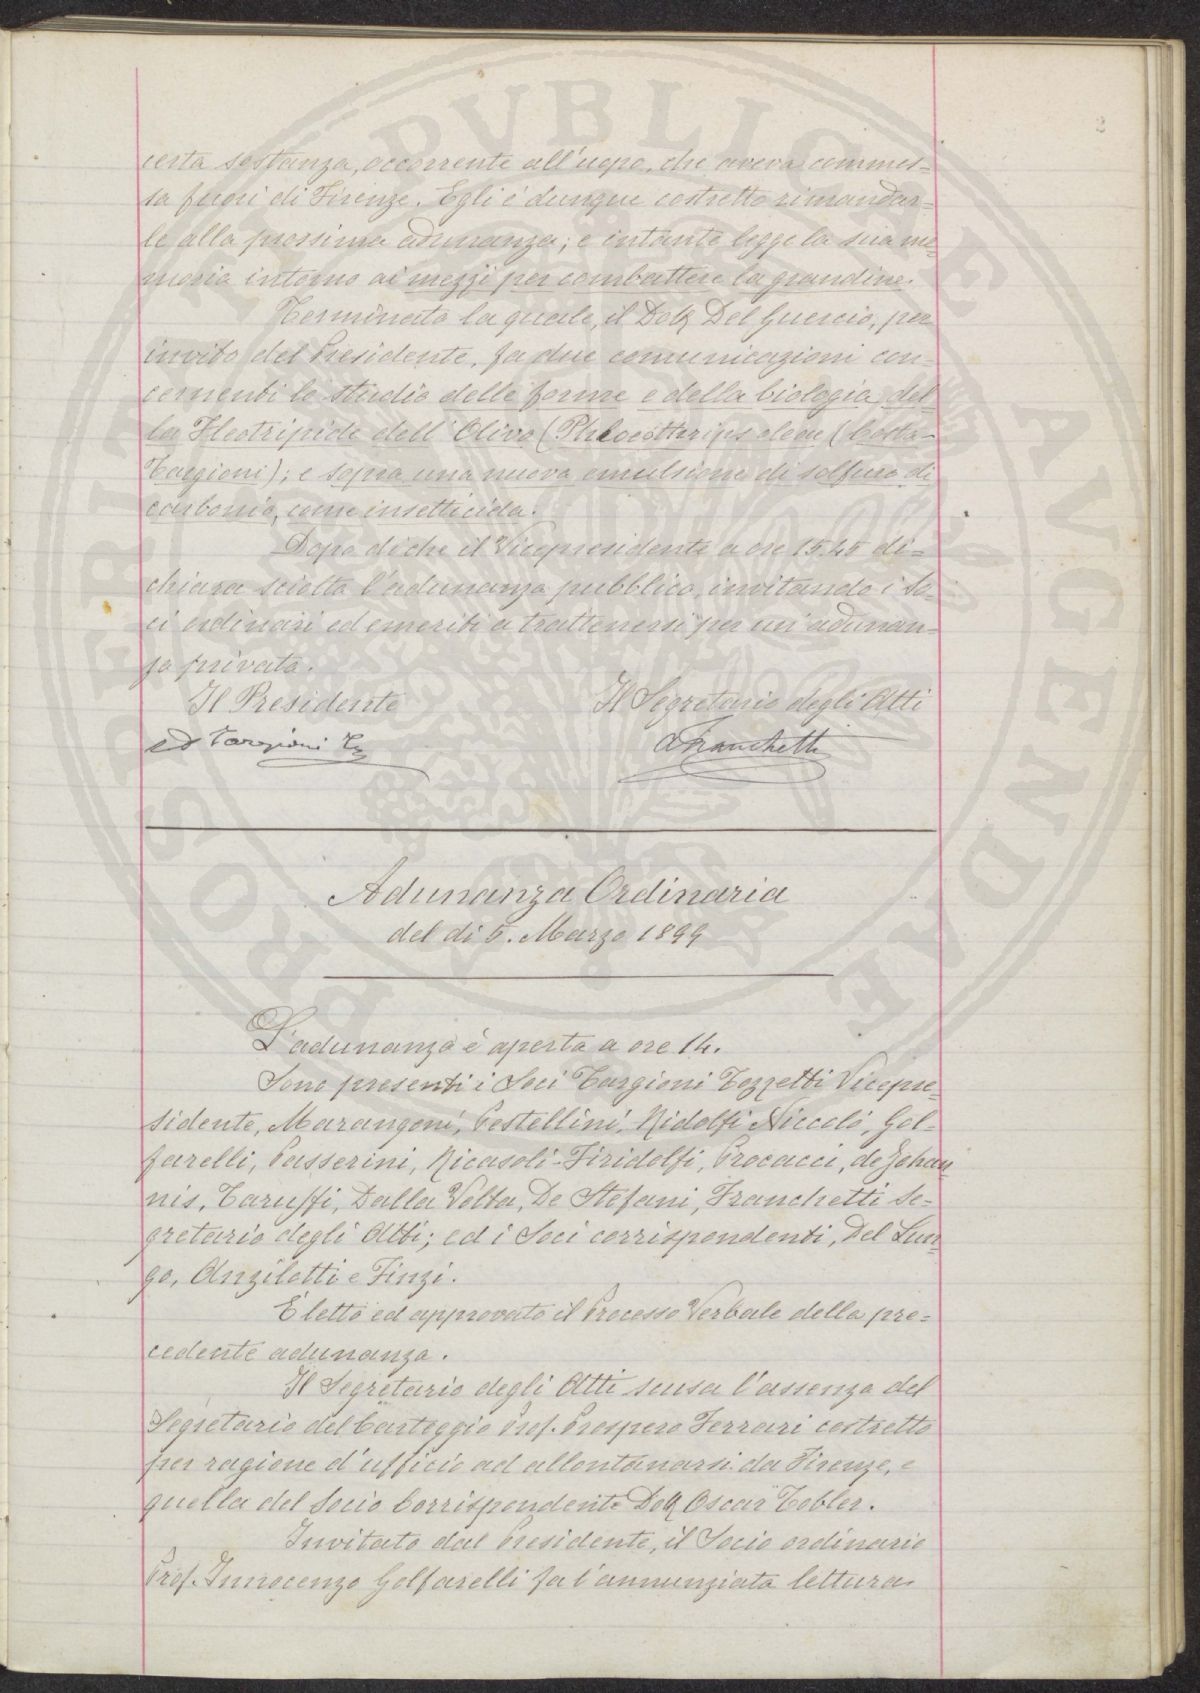 certa sostanza, occorrente all'uopo, che aveva commes=
sa fuori di Firenze. Egli è dunque costretto rimandar=
le alla prossima adunanza; e intanto legge la sua me=
moria intorno ai mezzi per combattere la grandine.
Terminata la quale, il Dott Del Guercio, per
invito del Presidente, fa due comunicazioni con=
cernenti lo studio delle forme e della biologia del=
la Fleotripide dell'Olivo (Phloeothrips oleae (Costa-
Targioni); e sopra una nuova emulsione di solfuro di
carbonio, come insetticida.
Dopo di che il Vicepresidente a ore 15.45 di=
chiara sciolta l'adunanza pubblica, invitando i So=
ci ordinari ed emeriti a trattenersi per un'adunan=
za privata.
Il Presidente Il Segretario degli Atti
Targioni Tz AFranchetti
Adunanza Ordinaria
del dì 5. Marzo 1899
L'adunanza è aperta a ore 14.
Sono presenti i Soci Targioni Tozzetti Vicepre=
sidente, Marangoni, Pestellini, Ridolfi Niccolò, Gol=
farelli, Passerini, Ricasoli-Firidolfi, Procacci, de Johan=
nis, Taruffi, Dalla Volta, De Stefani, Franchetti Se=
gretario degli Atti; ed i Soci corrispondenti, Del Lun=
go, Anzilotti e Finzi.
È letto ed approvato il Processo Verbale della pre=
cedente adunanza.
Il Segretario degli Atti scusa l'assenza del
Segretario del Carteggio Prof. Prospero Ferrari costretto
per ragione d'ufficio ad allontanarsi da Firenze, e
quella del Socio Corrispondente Dott Oscar Tobler.
Invitato dal Presidente, il Socio ordinario
Prof. Innocenzo Golfarelli fa l'annunziata lettura
PROSPERITATI PUBLICAE AUGENDAE